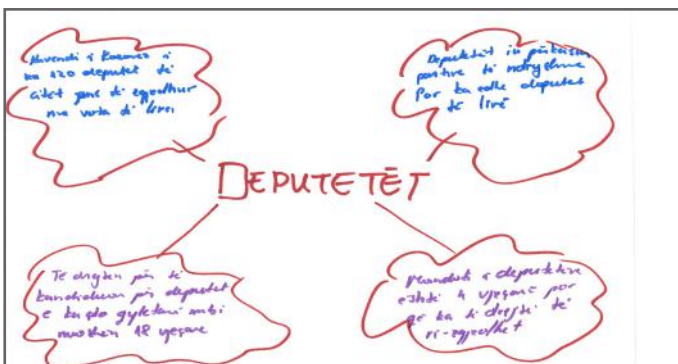 Kuvendi i Kosovës i
ka 120 deputet të
cilët janë të zgjedhur
me vota të lira
Deputetët iu përkasin
partive të ndryshme
Por ka edhe deputet
të lirë
DEPUTETËT
Të drejten për të
kandiduar për deputet
e ka çdo qytetari mbi
moshën 18 vjeçare
Mandati i deputetëve
është 4 vjeçarë por
që ka të drejtë të
ri-zgjedhet